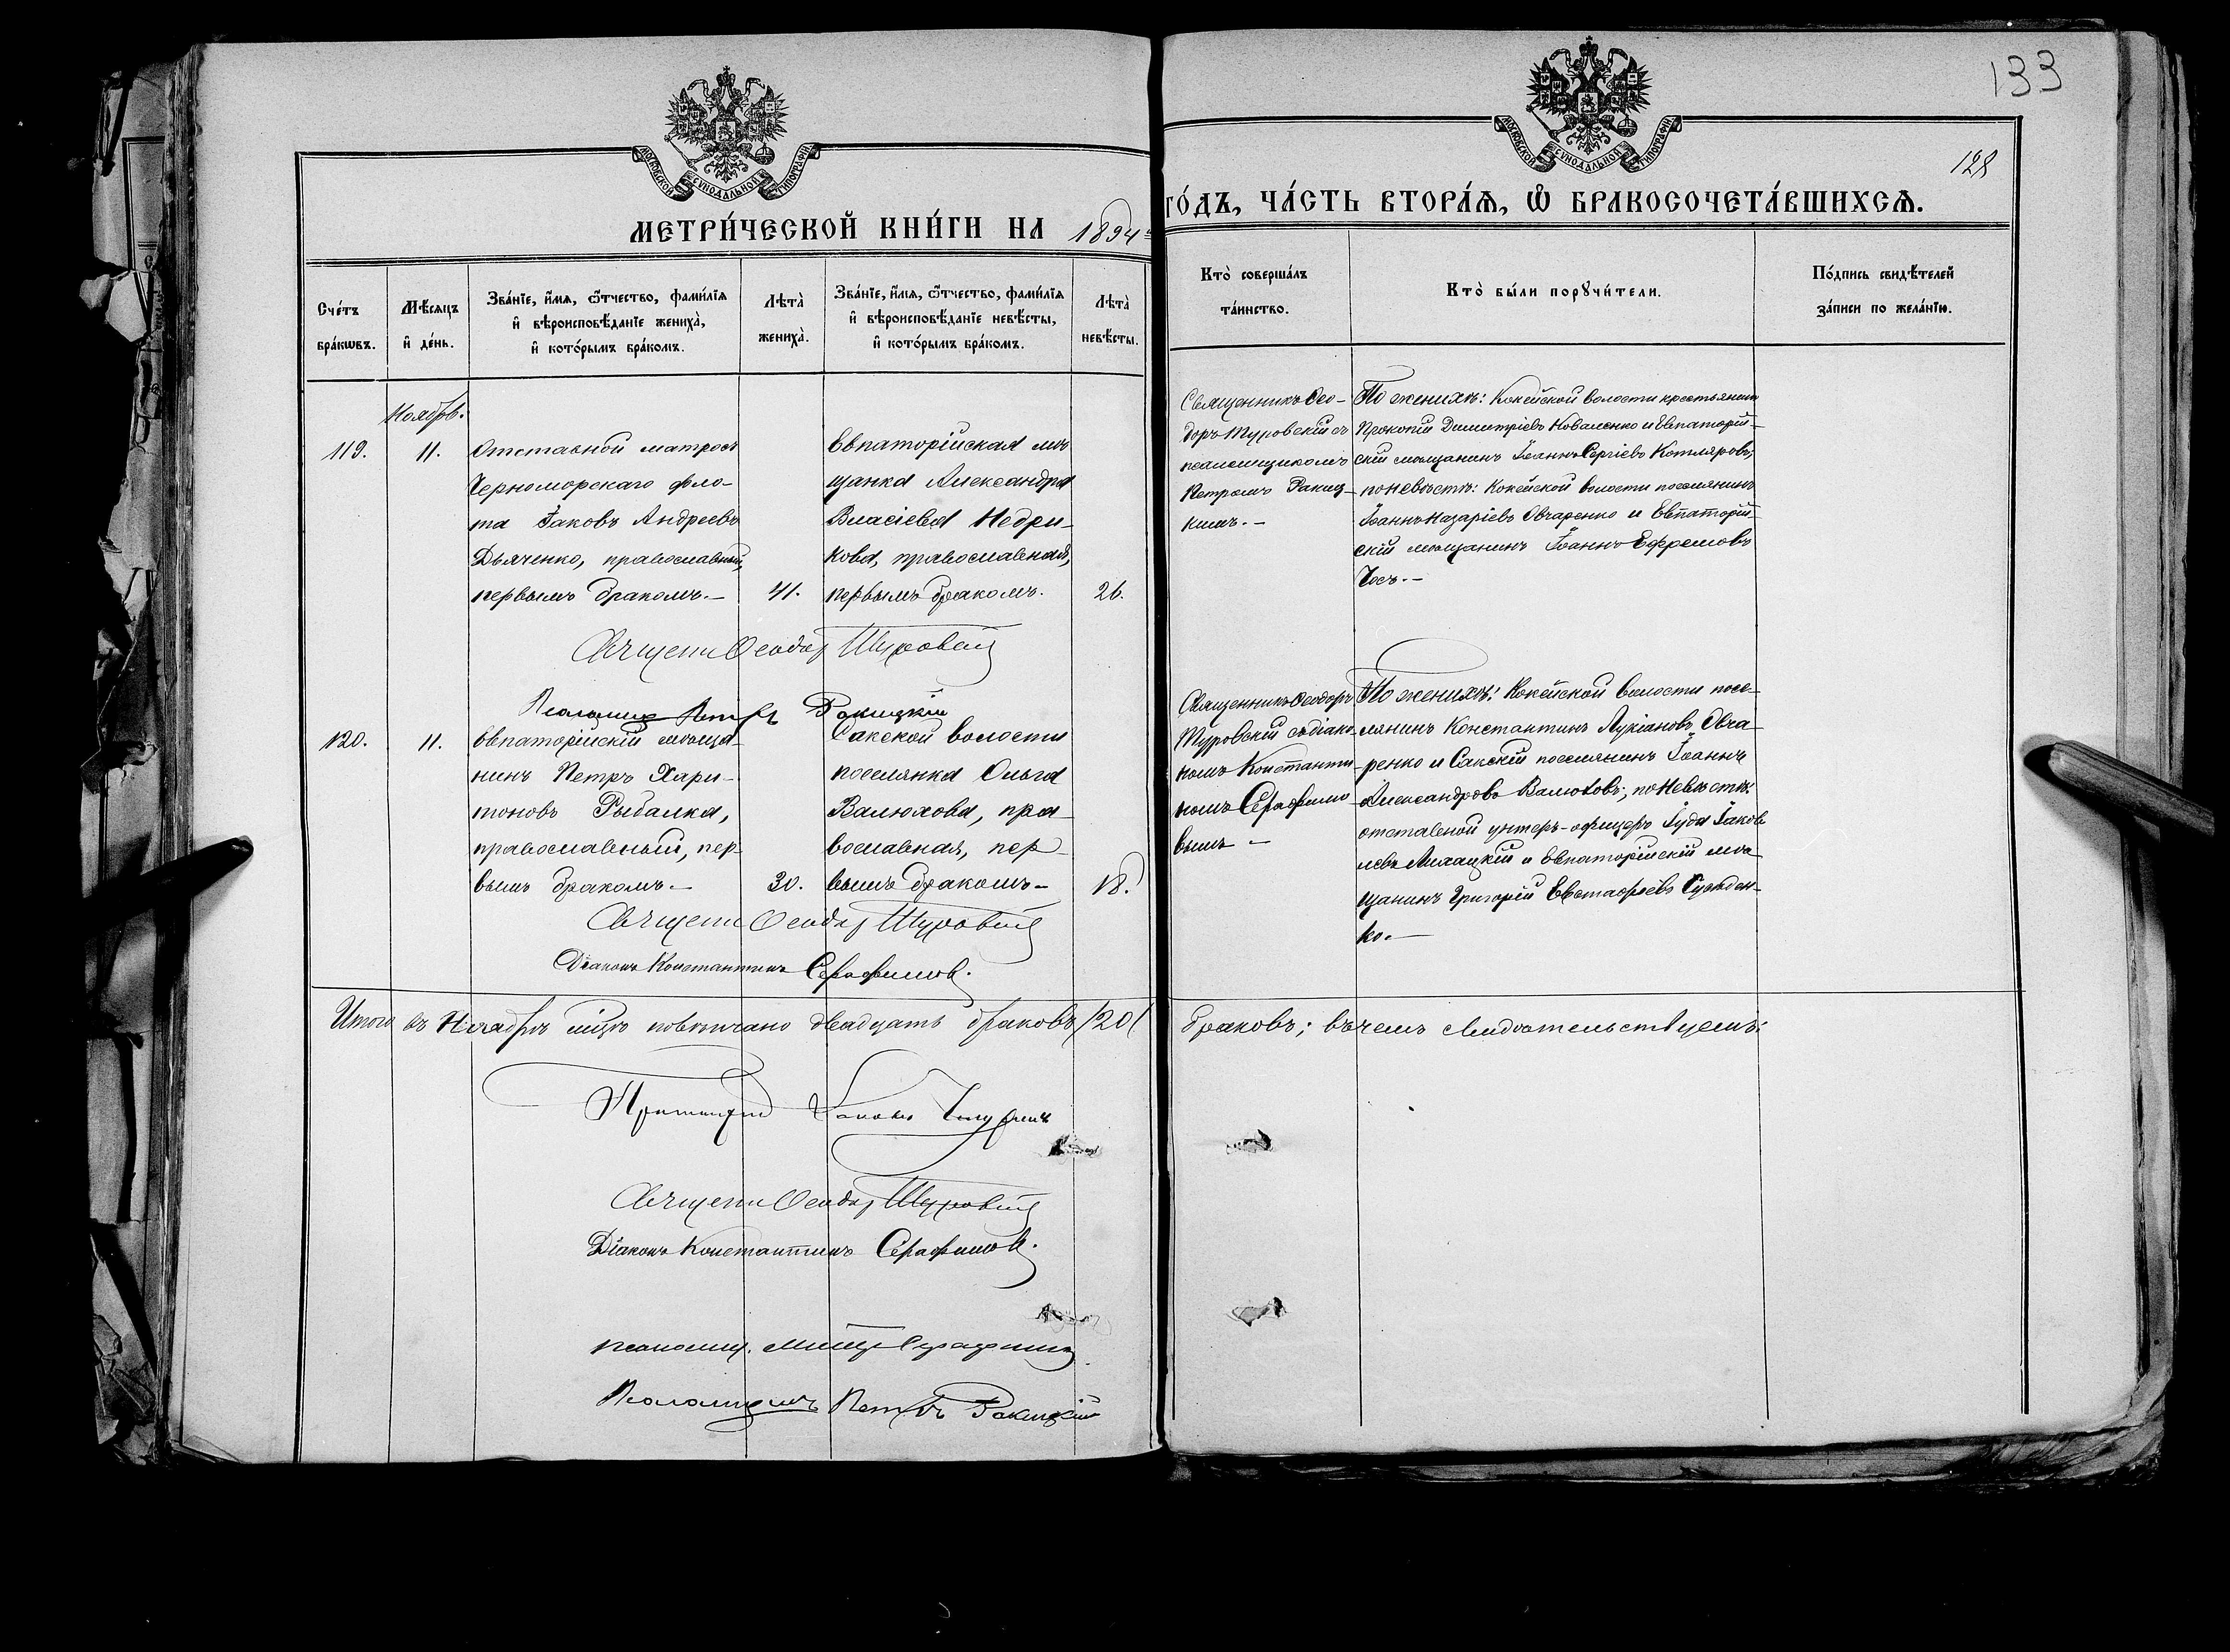 133
128
МОСКОВСКОЙ СѴНОДАЛЬНОЙ ТИПОГРАФІИ
МОСКОВСКОЙ СѴНОДАЛЬНОЙ ТИПОГРАФІИ
МЕТРИ́ЧЕСКОЙ КНИ́ГИ НА 1894
ГО́ДЪ, ЧА́СТЬ ВТОРА́Ѧ, Ѡ҆ БРАКОСОЧЕТА́ВШИХСѦ.
Сче́тъ бра́кѡвъ.
Мѣ́сяцъ и҆ де́нь.
Зва́нїе, и҆́мя, ѻ҆́тчество, фами́лїя
и҆ вѣроисповѣ́данїе жениха̀,
и҆ кото́рымъ бра́комъ.
Лѣта̀ жениха̀.
Зва́нїе, и҆́мя, ѻ҆́тчество, фами́лїя
и҆ вѣроисповѣ́данїе невѣ́сты,
и҆ кото́рымъ бра́комъ.
Лѣта̀ невѣ́сты.
Кто̀ соверша́лъ та́инство.
Кто̀ бы́ли порꙋчи́тели.
По́дпись свидѣ́телей
за́писи по жела́нїю.
Ноябрь.
119.
11.
Отставной матросъ
Черноморскаго фло-
та Іаковъ Андреевъ
Дьяченко, православный,
первымъ бракомъ.-
41.
Евпаторійская мѣ
щанка Александра
Власіева Недри-
кова, православная,
первымъ бракомъ.
26.
Священникъ Ѳео-
доръ Туровскій съ
псаломщикомъ
Петромъ Ракиц-
кимъ.-
По женихѣ: Кокейской волости крестьянинъ
Прокопій Димитріевъ Коваленко и Евпаторій-
скій мѣщанинъ Іоаннъ Сергіевъ Котляровъ;
по невѣстѣ: Кокейской волости поселянинъ
Іоаннъ Назаріевъ Овчаренко и Евпаторій-
скій мѣщанинъ Іоаннъ Ефремовъ
Чосъ.-
Священ Ѳеодор Туровскій
Псаломщикъ Петръ Ракицкій
120.
11.
Евпаторійскій мѣща-
нинъ Петръ Хари-
тоновъ Рыбалка,
православный, пер-
вымъ бракомъ.-
30.
Сакской волости
поселянка Ольга
Валюхова, пра-
вославная, пер-
вымъ бракомъ-
18.
Священникъ Ѳеодоръ
Туровскій съ діако-
номъ Константи-
номъ Серафимо
вымъ -
По женихѣ: Кокейской волости посе-
лянинъ Константинъ Лукіановъ Овча-
ренко и Сакскій поселянинъ Іоаннъ
Александровъ Валюховъ; по невѣстѣ:
отставной унтеръ-офицеръ Іуда Іаковъ
левъ и Евпаторійскій мѣ-
щанинъ Григорій Евстафіевъ
ко.-
Священ Ѳеодор Туровскій
Діаконъ Константинъ Серафимовъ.
Итого въ Ноябрѣ мцѣ повѣнчано двадцать браковъ /20/ браковъ; въ чемъ свидѣтельствуемъ:
Протоіерей Іаковъ
Священ Ѳеодор Туровскій
Діаконъ Константинъ Серафимовъ.
псаломщ.
Псаломщикъ Петръ Ракицкій